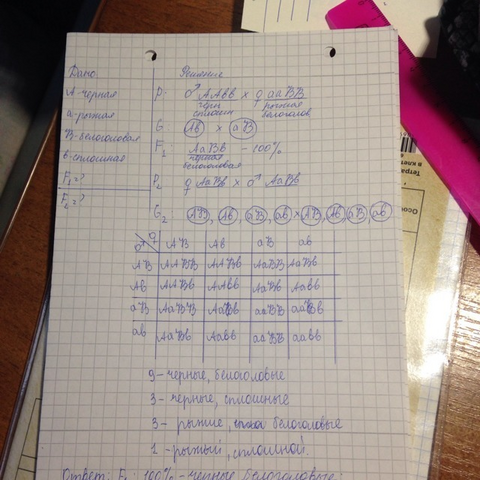 Дано
Решение
А-черная
P: ♂ ААвв x ♀ ааВВ
черн рыжая
сплошн белоголов
а-рыжая
G: Ав x аВ
В-белоголовая
F₁: АаВв - 100%
черная
белоголовая
в-сплошная
F₁=?
P₂ ♀ АаВв x ♂ АаВв
F₂=?
G₂: АВ, Ав, аВ, ав x АВ, Ав, аВ, ав
♂ ♀ АВ Ав аВ ав
АВ ААВВ ААВв АаВВ АаВв
Ав ААВв ААвв АаВв Аавв
аВ АаВВ АаВв ааВВ ааВв
ав АаВв Аавв ааВв аавв
9 - черные, белоголовые
3 - черные, сплошные
3 - рыжие, белоголовые
1 - рыжий, сплошной.
Ответ: F₁: 100% - черные белоголовые;
Тетра
в клет
Осо